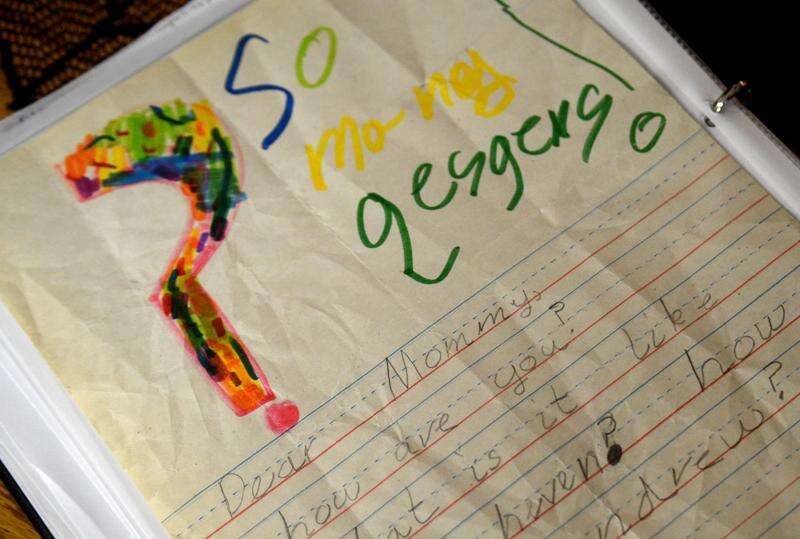 So
mo-ney
qesgens
Dear Mommy,
how are you?
at is it like
hiven? how
ndrew?